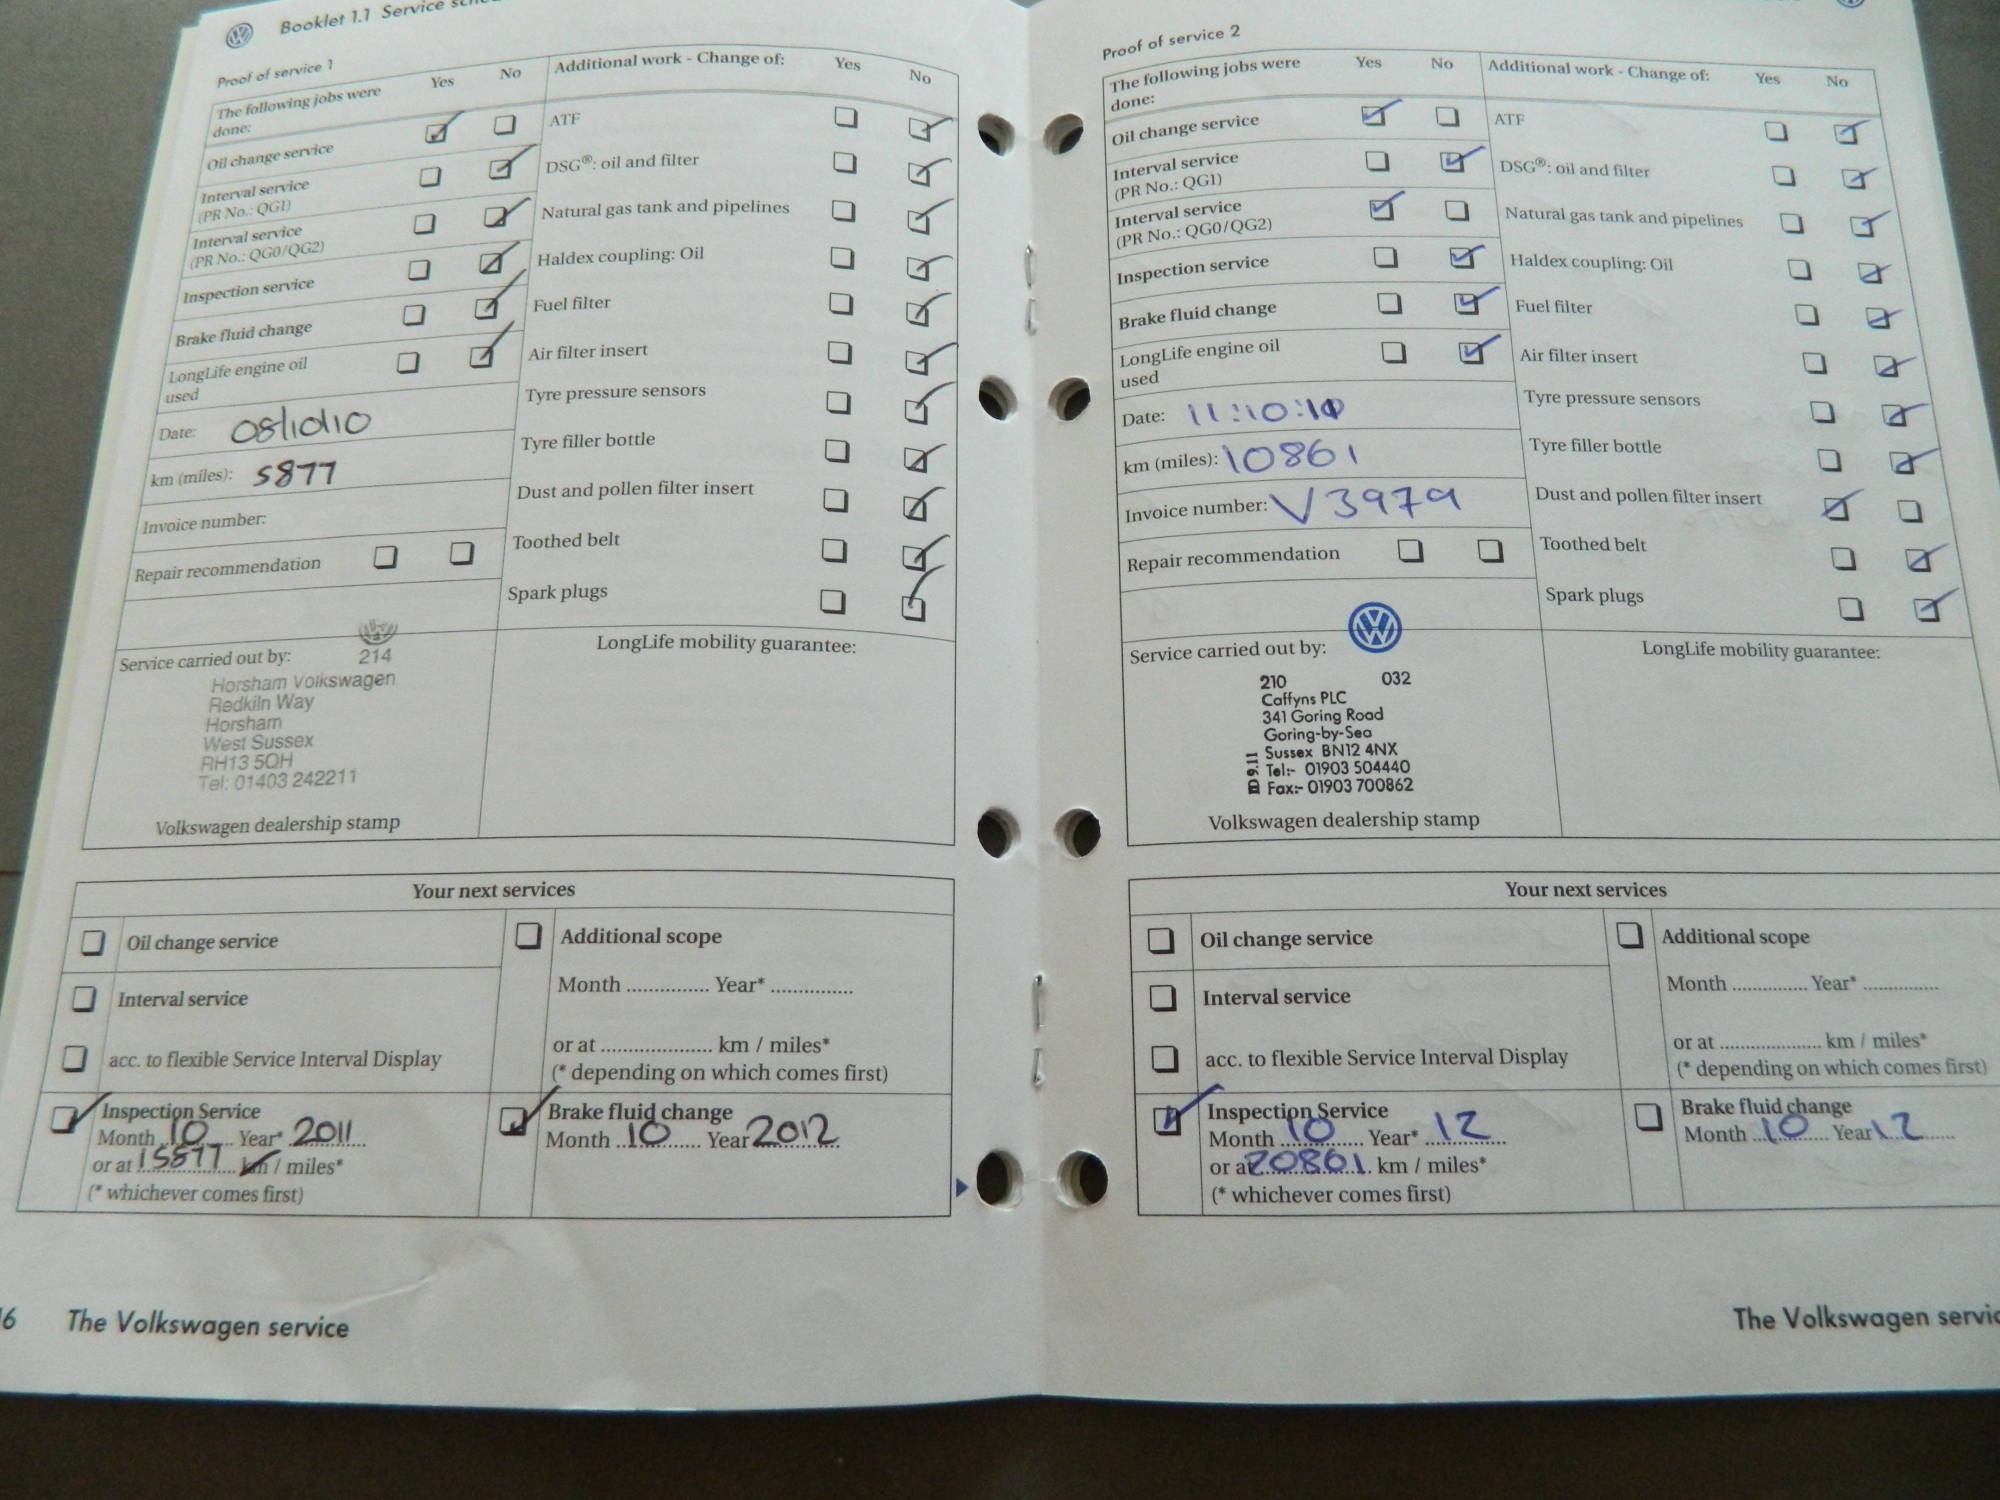 Booklet 1.1 Service
Proof of service 1
The following jobs were done:
Yes No
Additional work - Change of:
Yes No
Oil change service
Interval service
(PR No.: QG1)
Interval service
(PR No.: QG0/QG2)
Inspection service
Brake fluid change
LongLife engine oil
used
Date: 08/10/10
km (miles): 5877
Invoice number:
Repair recommendation
ATF
DSG®: oil and filter
Natural gas tank and pipelines
Haldex coupling: Oil
Fuel filter
Air filter insert
Tyre pressure sensors
Tyre filler bottle
Dust and pollen filter insert
Toothed belt
Spark plugs
Service carried out by:
214
Horsham Volkswagen
Redkiln Way
Horsham
West Sussex
RH13 5QH
Tel: 01403 242211
Volkswagen dealership stamp
LongLife mobility guarantee:
Your next services
Oil change service
Interval service
acc. to flexible Service Interval Display
Inspection Service
Month 10 Year* 2011
or at 15877 km / miles*
(* whichever comes first)
Additional scope
Month ............... Year* ...............
or at .................... km / miles*
(* depending on which comes first)
Brake fluid change
Month 10 Year 2012
16 The Volkswagen service
Proof of service 2
The following jobs were
done:
Yes No
Additional work - Change of:
Yes No
Oil change service
Interval service
(PR No.: QG1)
Interval service
(PR No.: QG0/QG2)
Inspection service
Brake fluid change
LongLife engine oil
used
Date: 11:10:10
km (miles): 10861
Invoice number: V3979
Repair recommendation
ATF
DSG®: oil and filter
Natural gas tank and pipelines
Haldex coupling: Oil
Fuel filter
Air filter insert
Tyre pressure sensors
Tyre filler bottle
Dust and pollen filter insert
Toothed belt
Spark plugs
Service carried out by:
210 032
Caffyns PLC
341 Goring Road
Goring-by-Sea
Sussex BN12 4NX
Tel:- 01903 504440
Fax:- 01903 700862
ID 9.11
Volkswagen dealership stamp
LongLife mobility guarantee:
Your next services
Oil change service
Interval service
acc. to flexible Service Interval Display
Inspection Service
Month 10 Year* 12
or at 20861 km / miles*
(* whichever comes first)
Additional scope
Month .............. Year* ..............
or at .................... km / miles*
(* depending on which comes first)
Brake fluid change
Month 10 Year 12
The Volkswagen servic